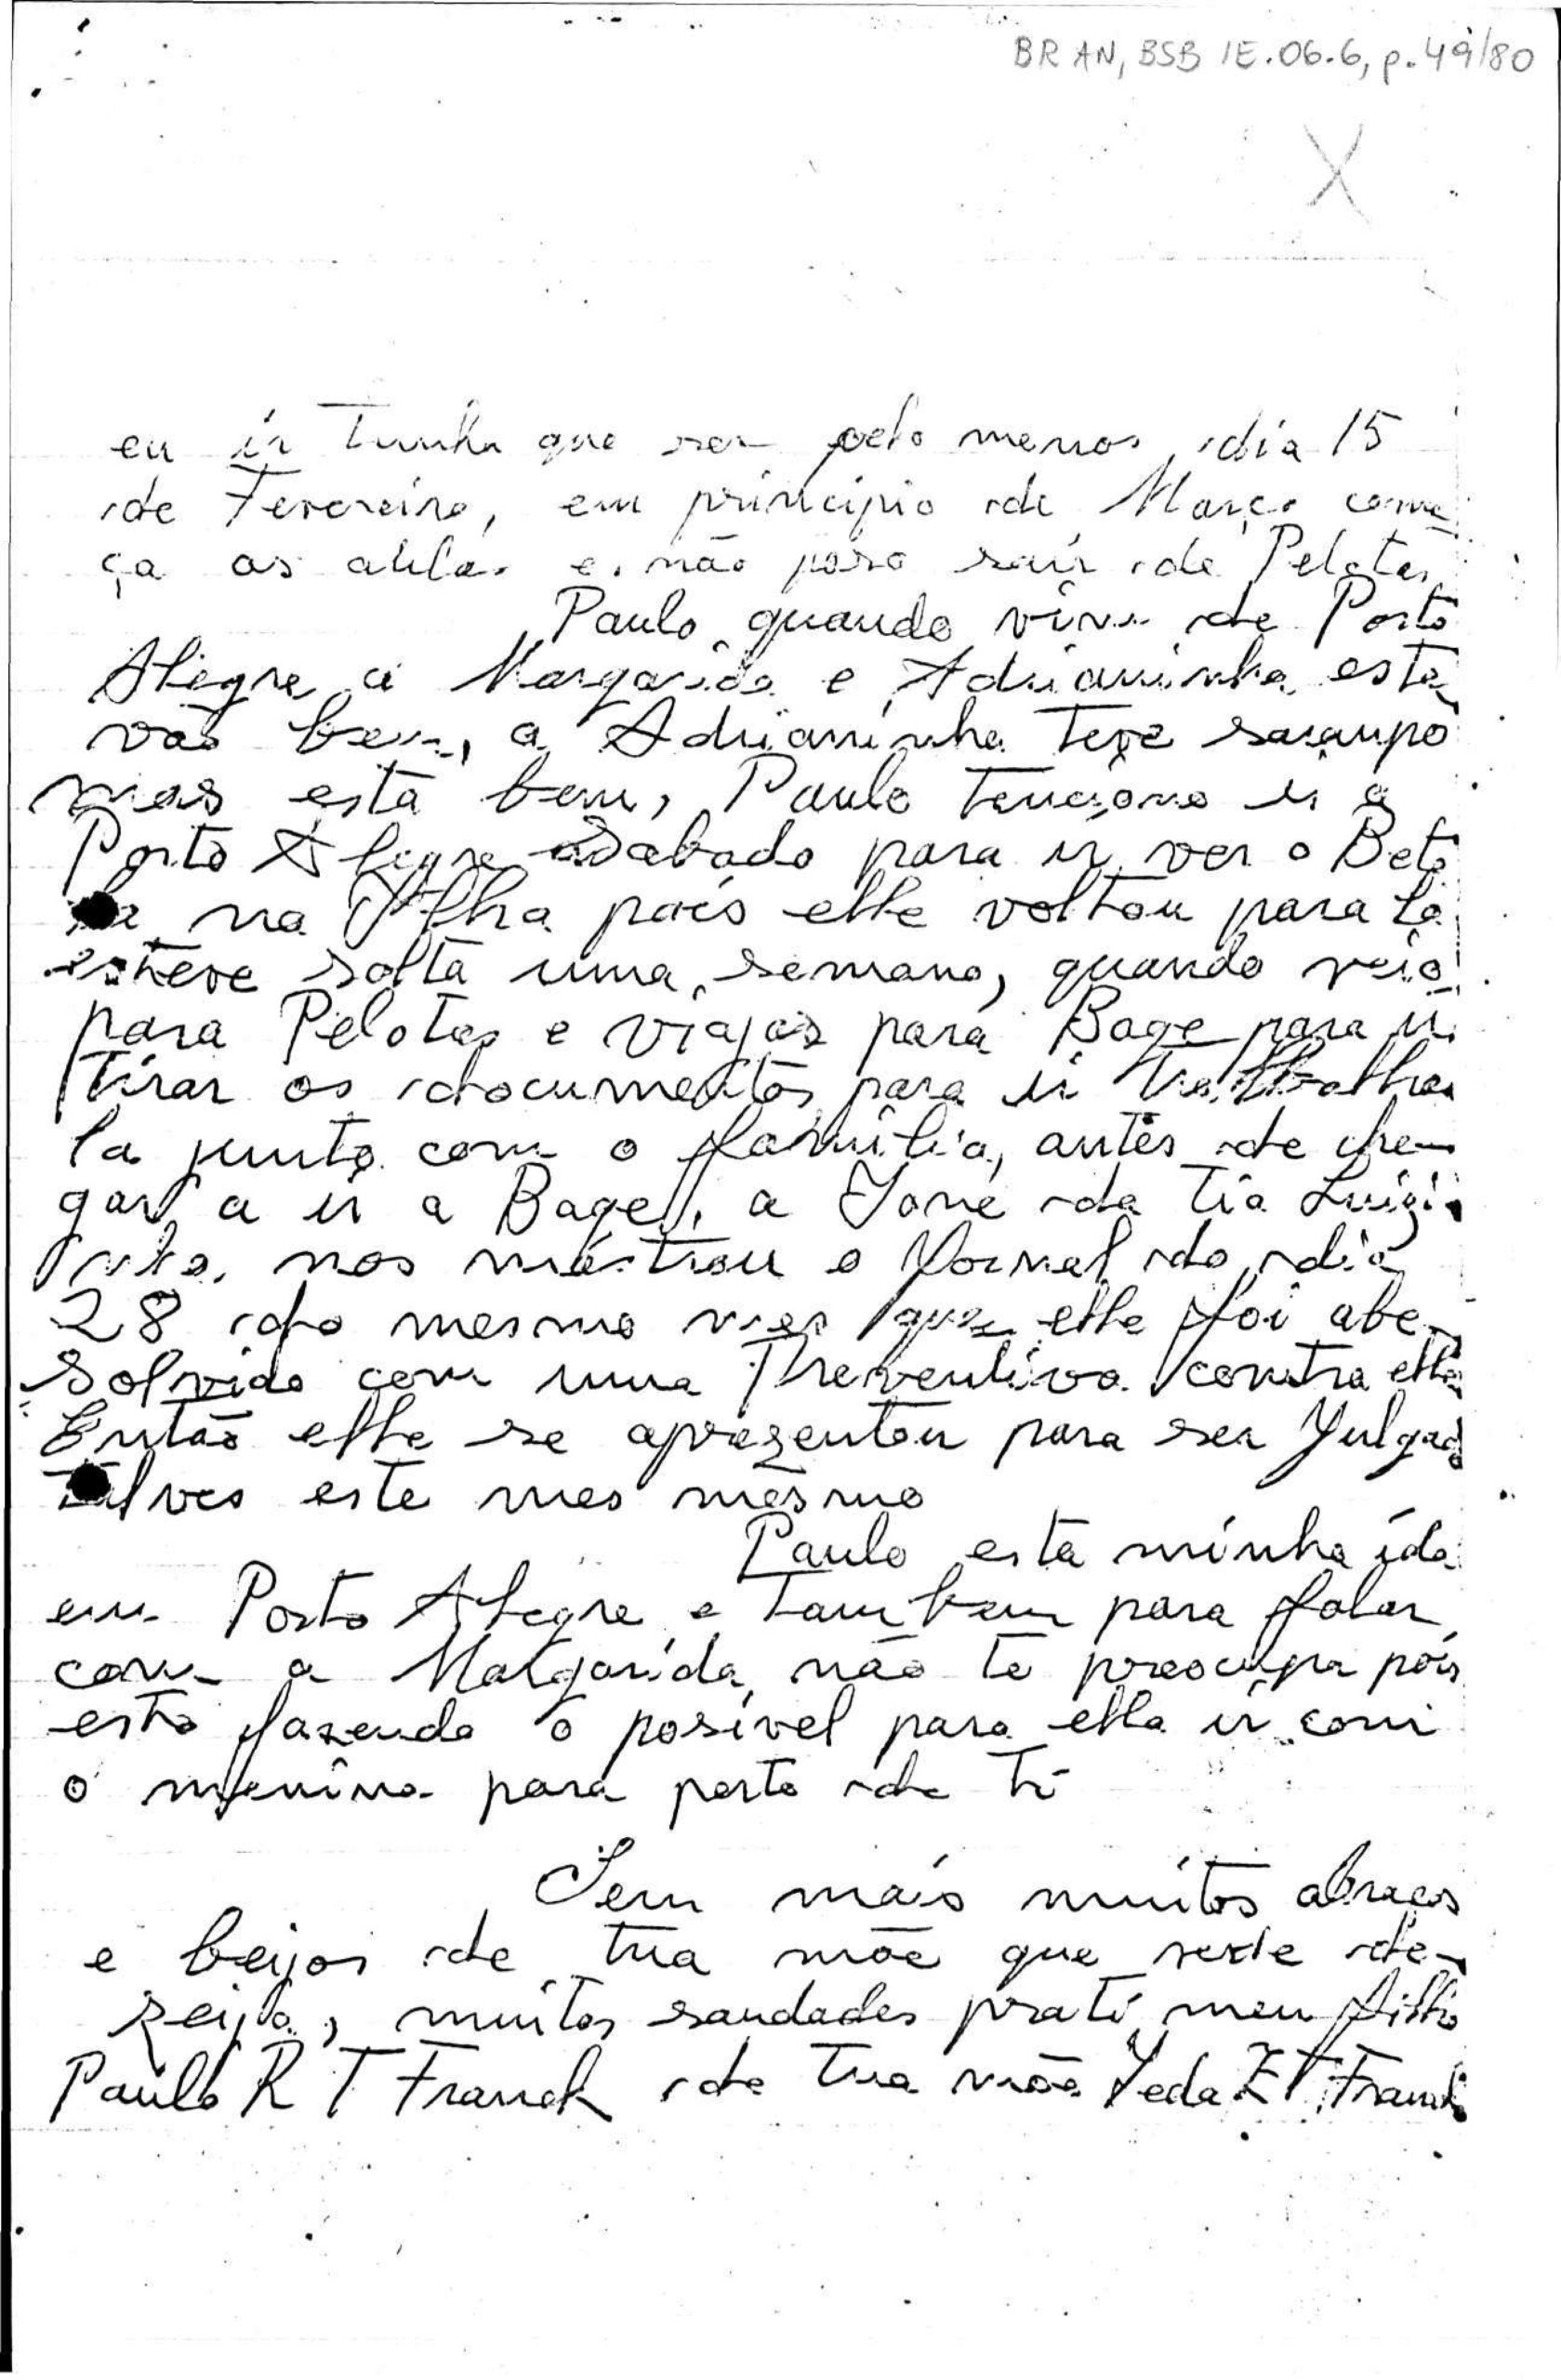 BR AN, BSB IE.06.6, p.49/80
X
eu ir tinha que ser pelo menos dia 15
de Fevereiro, em principio de Março come
ça as aulas e não poso sair de Pelotas
Paulo quando vim de Porto
Alegre a Margarida e Adrianinha esta
vão bem, a Adrianinha teve saranpo
mas esta bem, Paulo tenciono ir a
Porto Alegre Sabado para ir ver o Beto
na Ilha pois elle voltou para la
esteve solto uma semana, quando veio
para Pelotas e viajar para Bage para ir
tirar os documentos para ir trabalhar
la junto com a familia, antes de che-
gar a ir a Bage, a Yone da tia Luigi
nha, nos mostrou o Jornal do dia
28 do mesmo mes que elle foi abe-
solvido com uma Preventiva contra elle
Então elle se aprezentou para ser Julgado
talves este mes mesmo
Paulo esta minha ida
em Porto Alegre e tambem para falar
com a Margarida, não te preocupa pois
esto fazendo o posivel para ella ir com
o menino para perto de ti
Sem mais muitos abraços
e beijos de tua mãe que verte de-
zeija, muitas saudades prati meu filho
Paulo R T Franck de tua mãe Yeda Z T. Franck